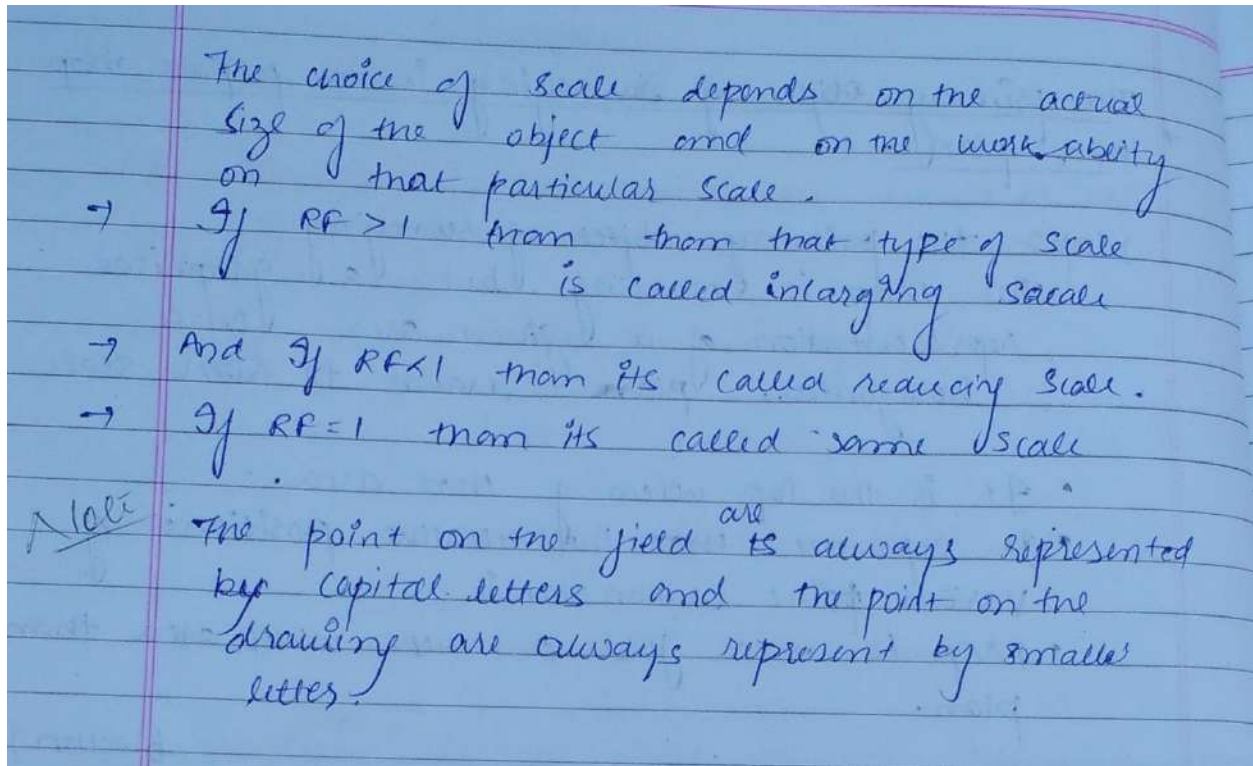 The choice of scale depends on the actual
size of the object and on the work abeity
on that particular scale.
→ If RF > 1 than than that type of scale
is called inlarging sacale
→ And If RF<1 than its called reducing scale.
→ If RF = 1 than its called same scale
Note : The point on the field are is always represented
by capital letters and the point on the
drawing are always represent by smaller
letter.